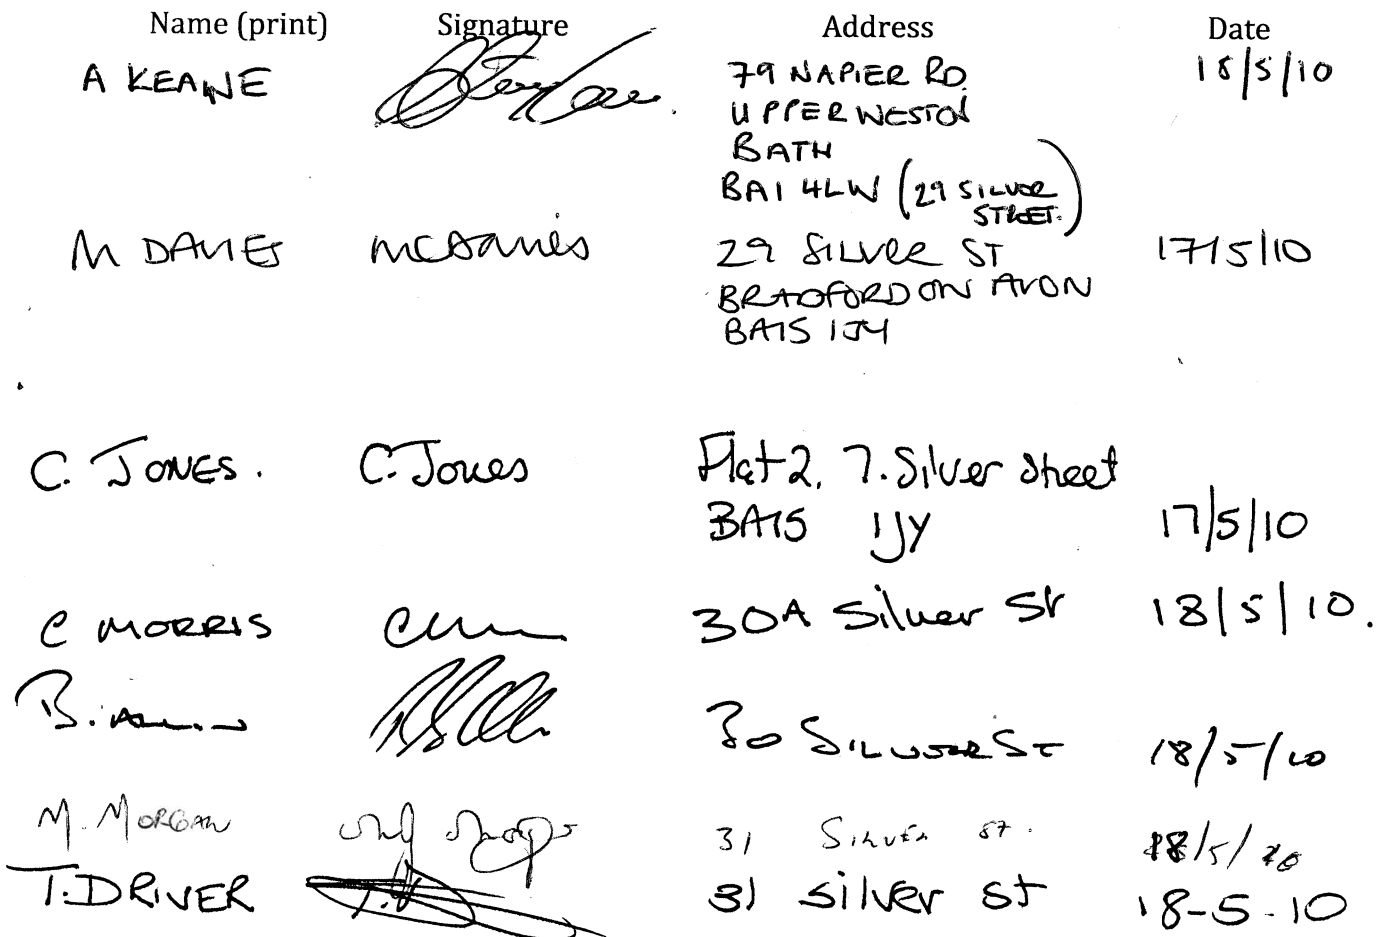 Name (print) Signature Address Date
A KEANE 79 NAPIER RD. 18/5/10
UPPER WESTON
BATH
BA1 4LW (29 SILVER
STREET.)
M DAVIES MCDavies 29 SILVER ST 17/5/10
BRADFORD ON AVON
BA15 1JY
C. JONES. C. Jones Flat 2, 7. Silver Street
BA15 1JY 17/5/10
C MORRIS 30A Silver St 18/5/10.
B. 30 SILVER ST 18/5/10
M. MORGAN 31 SILVER ST. 18/5/10
T. DRIVER 31 Silver St 18-5-10